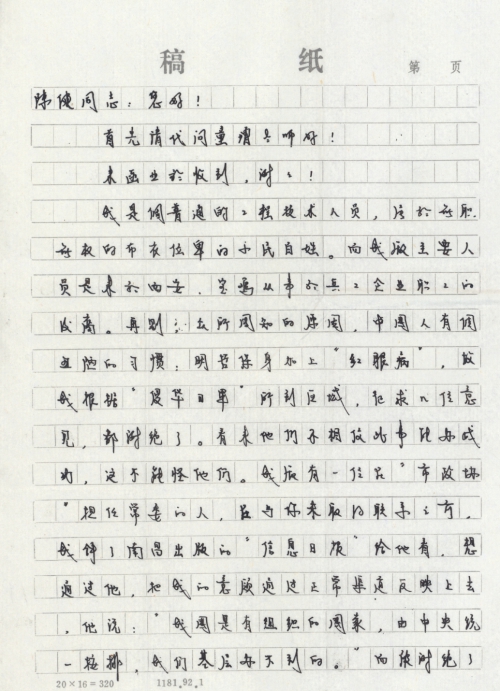 稿 纸 第 页
陈健同志：您好！
首先请代问童增兄师好！
来函业于收到，谢谢！
我是個普通的工程技术人员，
的布衣位卑的子民百姓。而我厂主要人
员是来於西安、宝鸡从事於兵工企业职工的
后裔。再则：众所周知的原因，中国人有個
丑陋的习惯：明哲保身加上"红眼病"，故
我根据"侵华日军"所到区域，征求几位意
见，都谢绝了。看来他们不相信此事能办成
功，这不能怪他们。我厂有一位在"市政协
"担任常委的人，在与你未取得联系之前，
我拜了南昌出版的"信息日报"给他看，想
通过他，把我的意愿通过正常渠道反映上去
，他说："我国是有组织的国家，由中央统
一按排，我们基层办不到的。"而后谢绝了
20×16=320 1181.92.1